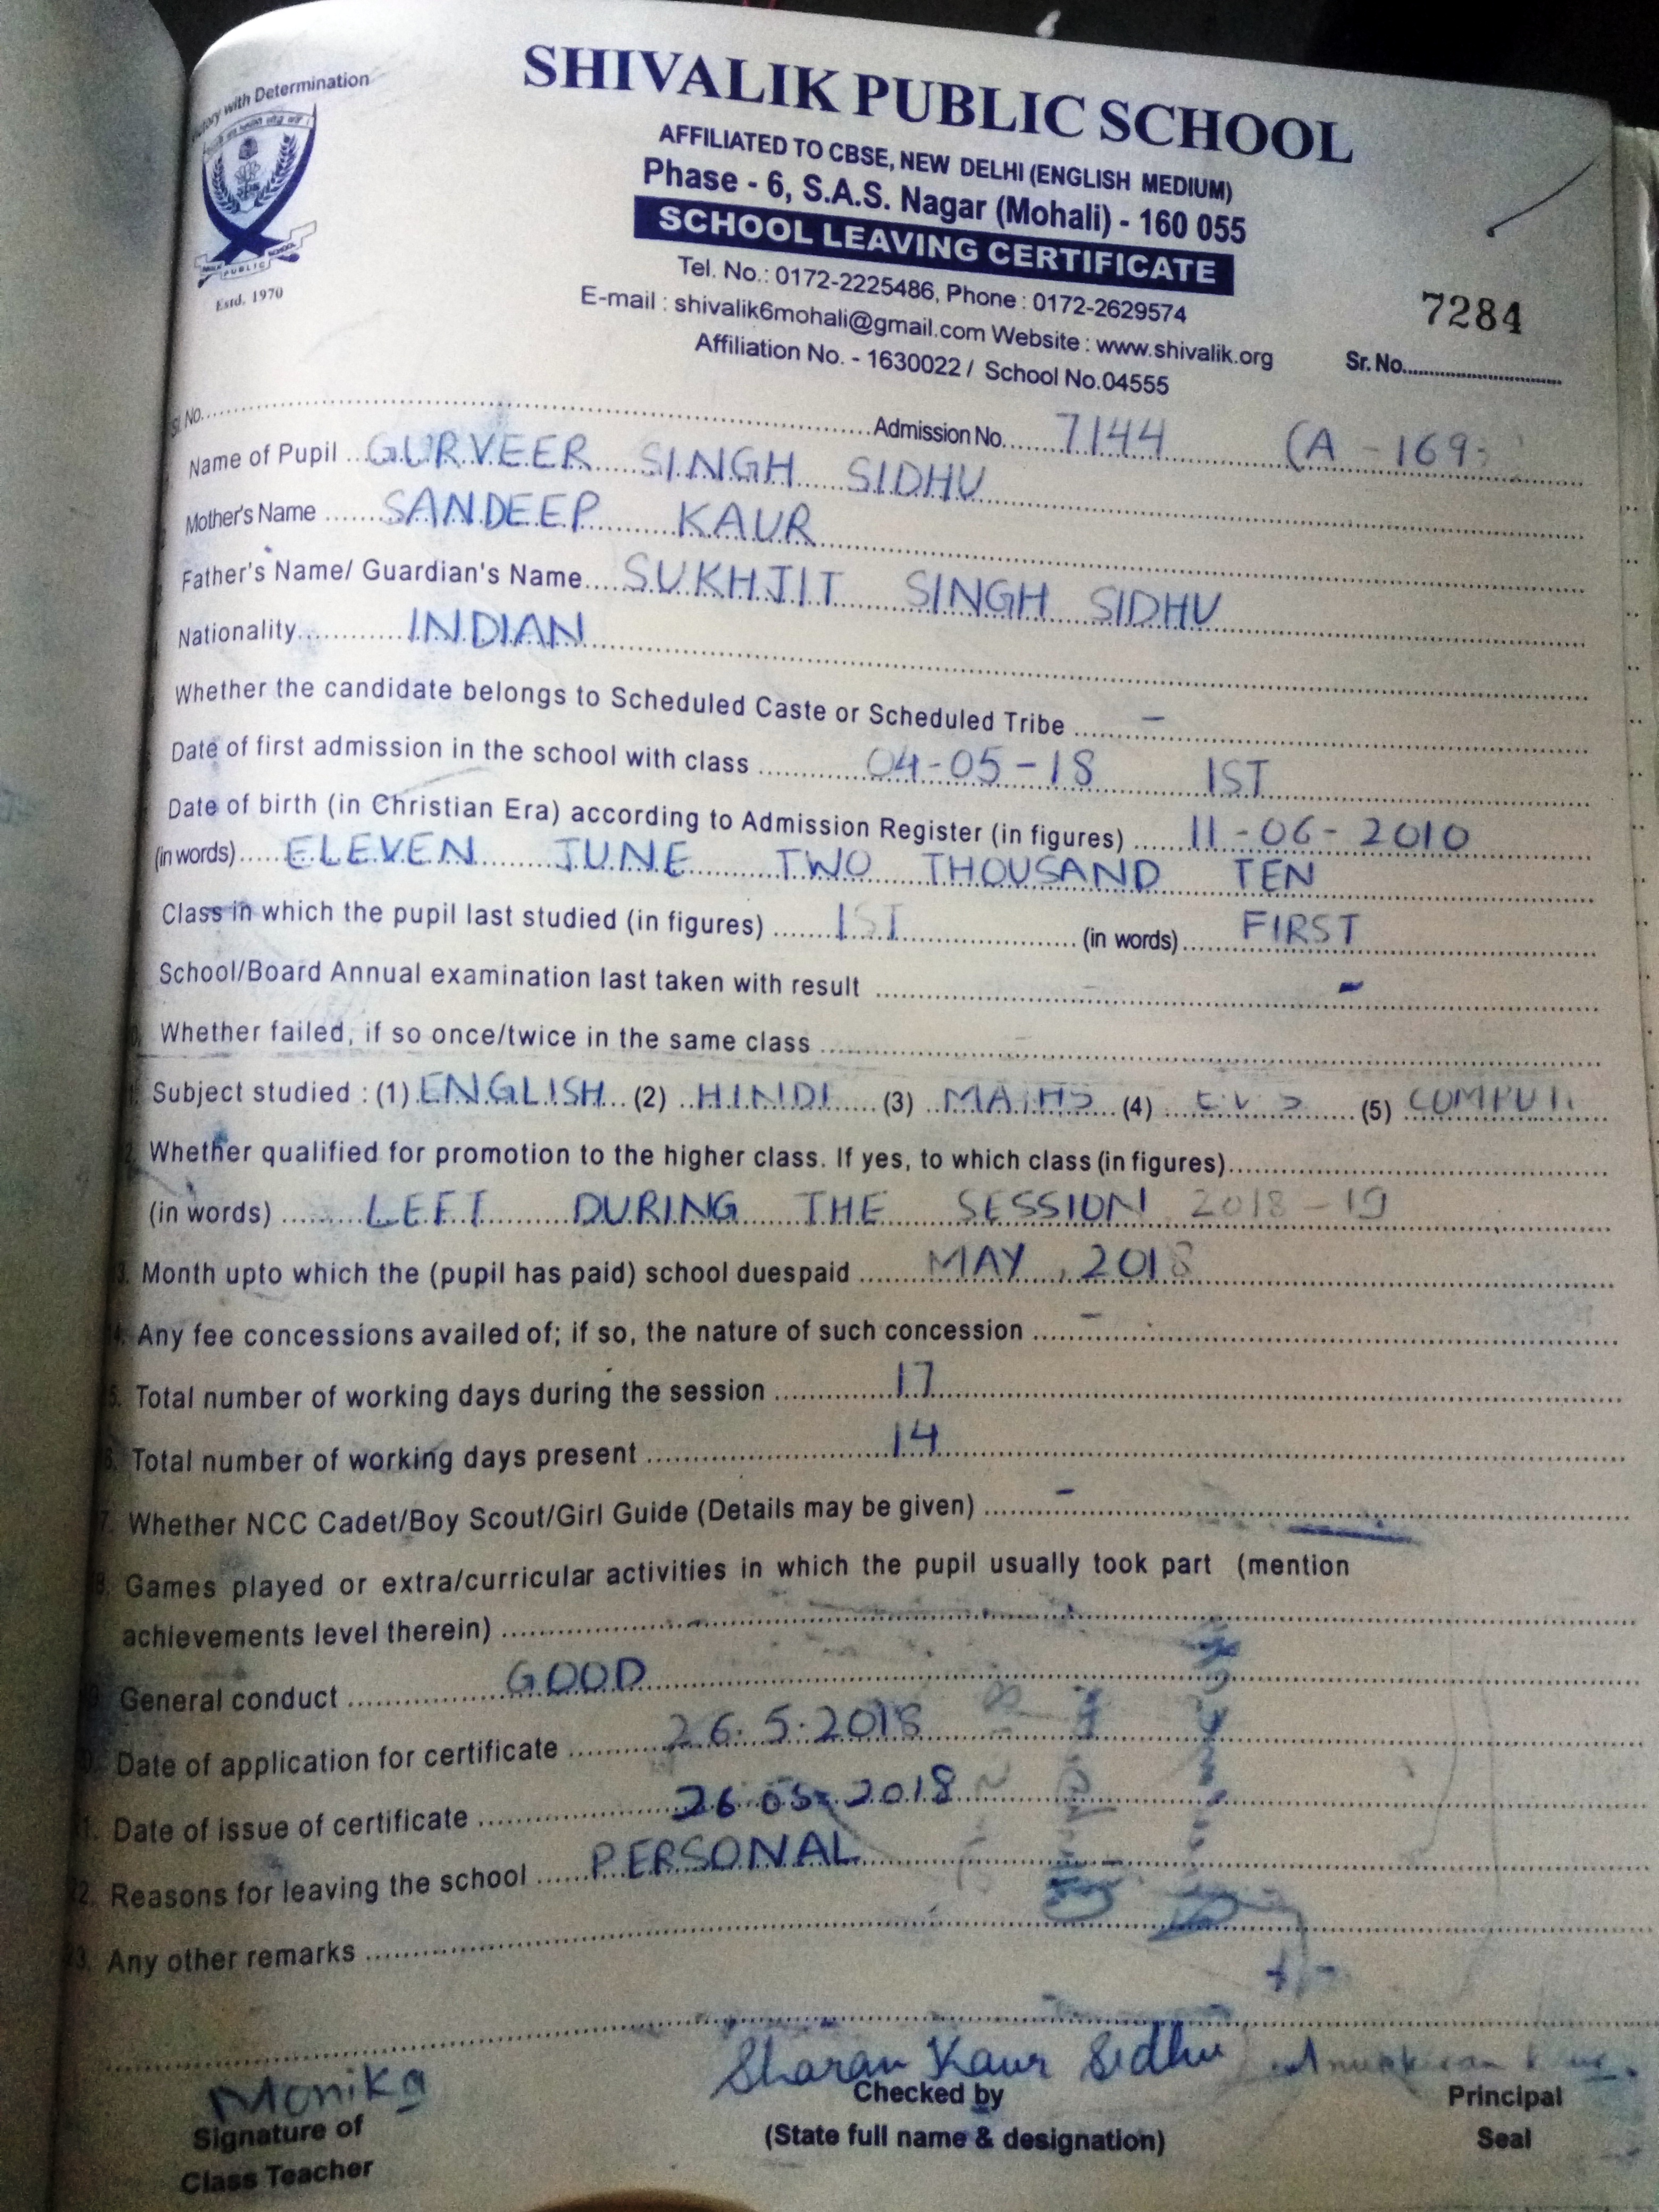 with Determination
PUBLIC SCHOOL
Estd. 1970
SHIVALIK PUBLIC SCHOOL
AFFILIATED TO CBSE, NEW DELHI (ENGLISH MEDIUM)
Phase - 6, S.A.S. Nagar (Mohali) - 160 055
SCHOOL LEAVING CERTIFICATE
Tel. No.: 0172-2225486, Phone : 0172-2629574
E-mail : shivalik6mohali@gmail.com Website : www.shivalik.org
Affiliation No. - 1630022 / School No.04555
7284
Sr. No.
Sl. No. Admission No. 7144 (A - 169
Name of Pupil GURVEER SINGH SIDHU
Mother's Name SANDEEP KAUR
Father's Name/ Guardian's Name SUKHJIT SINGH SIDHU
Nationality INDIAN
Whether the candidate belongs to Scheduled Caste or Scheduled Tribe -
Date of first admission in the school with class 04-05-18 IST
Date of birth (in Christian Era) according to Admission Register (in figures) 11-06-2010
(in words) ELEVEN JUNE TWO THOUSAND TEN
Class in which the pupil last studied (in figures) IST (in words) FIRST
School/Board Annual examination last taken with result -
Whether failed, if so once/twice in the same class
Subject studied : (1) ENGLISH (2) HINDI (3) MATHS (4) EVS (5)
Whether qualified for promotion to the higher class. If yes, to which class (in figures)
(in words) LEFT DURING THE SESSION 2018-19
Month upto which the (pupil has paid) school duespaid MAY, 2018
Any fee concessions availed of; if so, the nature of such concession -
5. Total number of working days during the session 17
6. Total number of working days present 14
7. Whether NCC Cadet/Boy Scout/Girl Guide (Details may be given) -
8. Games played or extra/curricular activities in which the pupil usually took part (mention
achievements level therein)
General conduct GOOD
Date of application for certificate 26.5.2018
1. Date of issue of certificate 26.05.2018
22. Reasons for leaving the school PERSONAL
3. Any other remarks
Monika Sharan Kaur Sidhu
Signature of Checked by Principal
Class Teacher (State full name & designation) Seal